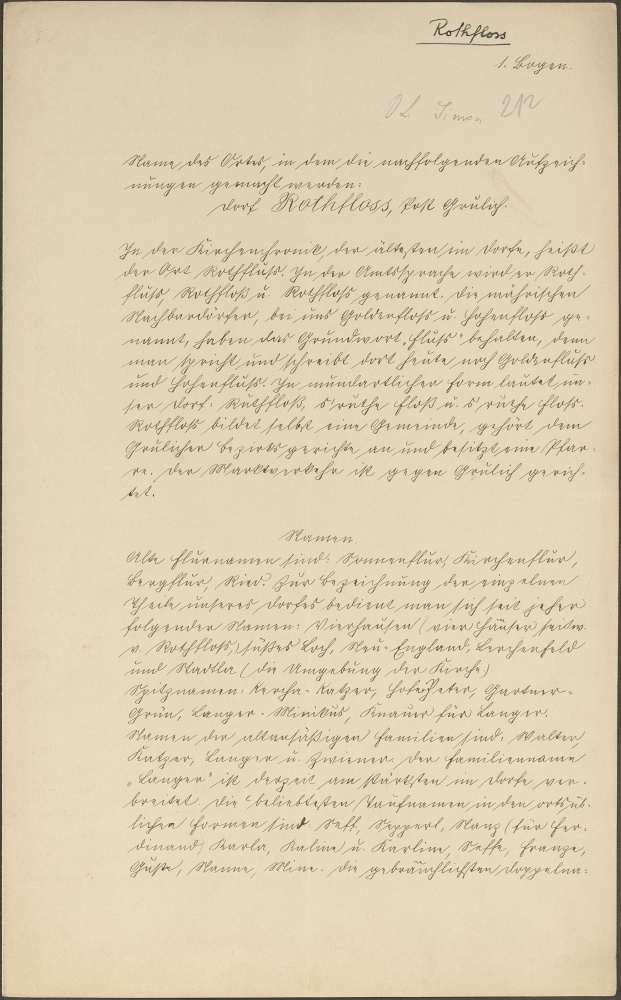 Rothfloss
1. Bogen.
Simon 212
Name des Ortes, in dem die nachfolgenden Aufzeich-
nungen gemacht werden:
Dorf Rothfloss, Post Grulich.
In der Kirchenchronik, der ältesten im Dorfe, heißt
der Ort Rothfluss. In der Amtssprache wird er Roth-
fluss, Rothfloß u. Rothfloss genannt. Die mährischen
Nachbardörfer, bei uns Goldenfloss u. Hohenfloss ge-
nannt, haben das Grundwort "fluss" behalten, denn
man spricht und schreibt dort heute noch Goldenfluss
und Hohenfluss. In mundartlicher Form lautet un-
ser Dorf: Ruthfloß, s'ruthe Floß u. s' ruthe Floss.
Rothfloss bildet selbst eine Gemeinde, gehört dem
Grulicher Bezirksgerichte an und besitzt eine Pfar-
re. Der Marktverkehr ist gegen Grulich gerich-
tet.
Namen
Alte Flurnamen sind: Sonnenflur, Kirchenflur,
Bergflur, Ried. Zur Bezeichnung der einzelnen
Theile unseres Dorfes bedient man sich seit jeher
folgender Namen: Vierhäuser (vier Häuser seitw.
v. Rothfloss), süßes Loch, Neu-England, Lerchenfeld
und Stadtla (die Umgebung der Kirche)
Spitznamen: Katzer, Peter, Gartner-
Grün, Langer-Minikus, Knauer für Langer.
Namen der altansäßigen Familien sind: Walter,
Katzer, Langer u. Zwiener. Der Familienname
"Langer" ist derzeit am stärksten im Dorfe ver-
breitet. Die beliebtesten Taufnamen in den ortsüb-
lichen Formen sind Seff, Sepperl, Nanz (für Fer-
dinand) Karla, Kaline u. Karline, Seffe, Franze,
Guste, Nanne, Mine. Die gebräuchlichsten Doppelna-